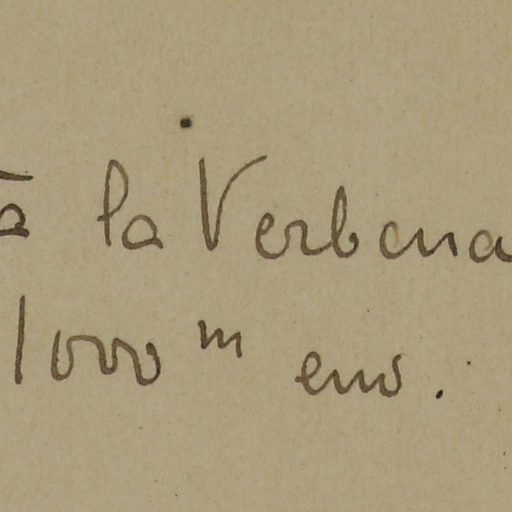 à la Verbena
1000 m env.